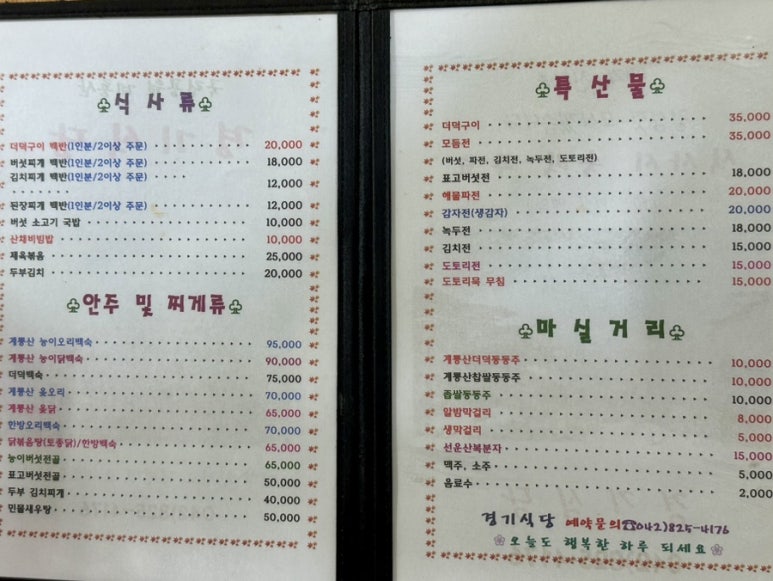 식 사 류
더덕구이 백반(1인분/2이상 주문) 20,000
버섯찌개 백반(1인분/2이상 주문) 18,000
김치찌개 백반(1인분/2이상 주문) 12,000
된장찌개 백반(1인분/2이상 주문) 12,000
버섯 소고기 국밥 10,000
산채비빔밥 10,000
제육볶음 25,000
두부김치 20,000
안주 및 찌게류
계룡산 능이오리백숙 95,000
계룡산 능이닭백숙 90,000
더덕백숙 75,000
계룡산 옻오리 70,000
계룡산 옻닭 65,000
한방오리백숙 70,000
닭볶음탕(토종닭)/한방백숙 65,000
능이버섯전골 65,000
표고버섯전골 50,000
두부 김치찌개 40,000
민물새우탕 50,000
특 산 물
더덕구이 35,000
모듬전 35,000
(버섯, 파전, 김치전, 녹두전, 도토리전)
표고버섯전 18,000
해물파전 20,000
감자전(생감자) 20,000
녹두전 18,000
김치전 15,000
도토리전 15,000
도토리묵 무침 15,000
마 실 거 리
계룡산더덕동동주 10,000
계룡산찹쌀동동주 10,000
좁쌀동동주 10,000
알밤막걸리 8,000
생막걸리 5,000
선운산복분자 15,000
맥주, 소주 5,000
음료수 2,000
경기식당 예약문의☎042)825-4176
오늘도 행복한 하루 되세요